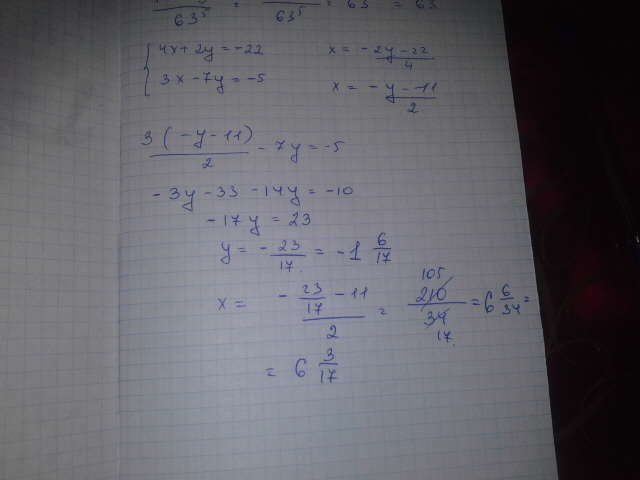 63⁵ = 63⁵ = 63 = 63
{ 4x + 2y = -22 x = (-2y-22)/4
{ 3x - 7y = -5 x = (-y-11)/2
3(-y-11)/2 - 7y = -5
-3y - 33 - 14y = -10
-17y = 23
y = -23/17 = -1 6/17
x = (-23/17 - 11)/2 = 210/34 105 17 = 6 6/34 =
= 6 3/17